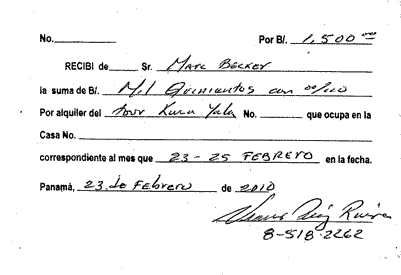 No. Por B/. 1,500 00/100
RECIBI de Sr. Marc Becker
la suma de B/. Mil Quinientos con 00/100
Por alquiler del tour Kuna Yala No. que ocupa en la
Casa No.
correspondiente al mes que 23 - 25 FEBRERO en la fecha.
Panamá, 23 de Febrero de 2010
8-518-2262